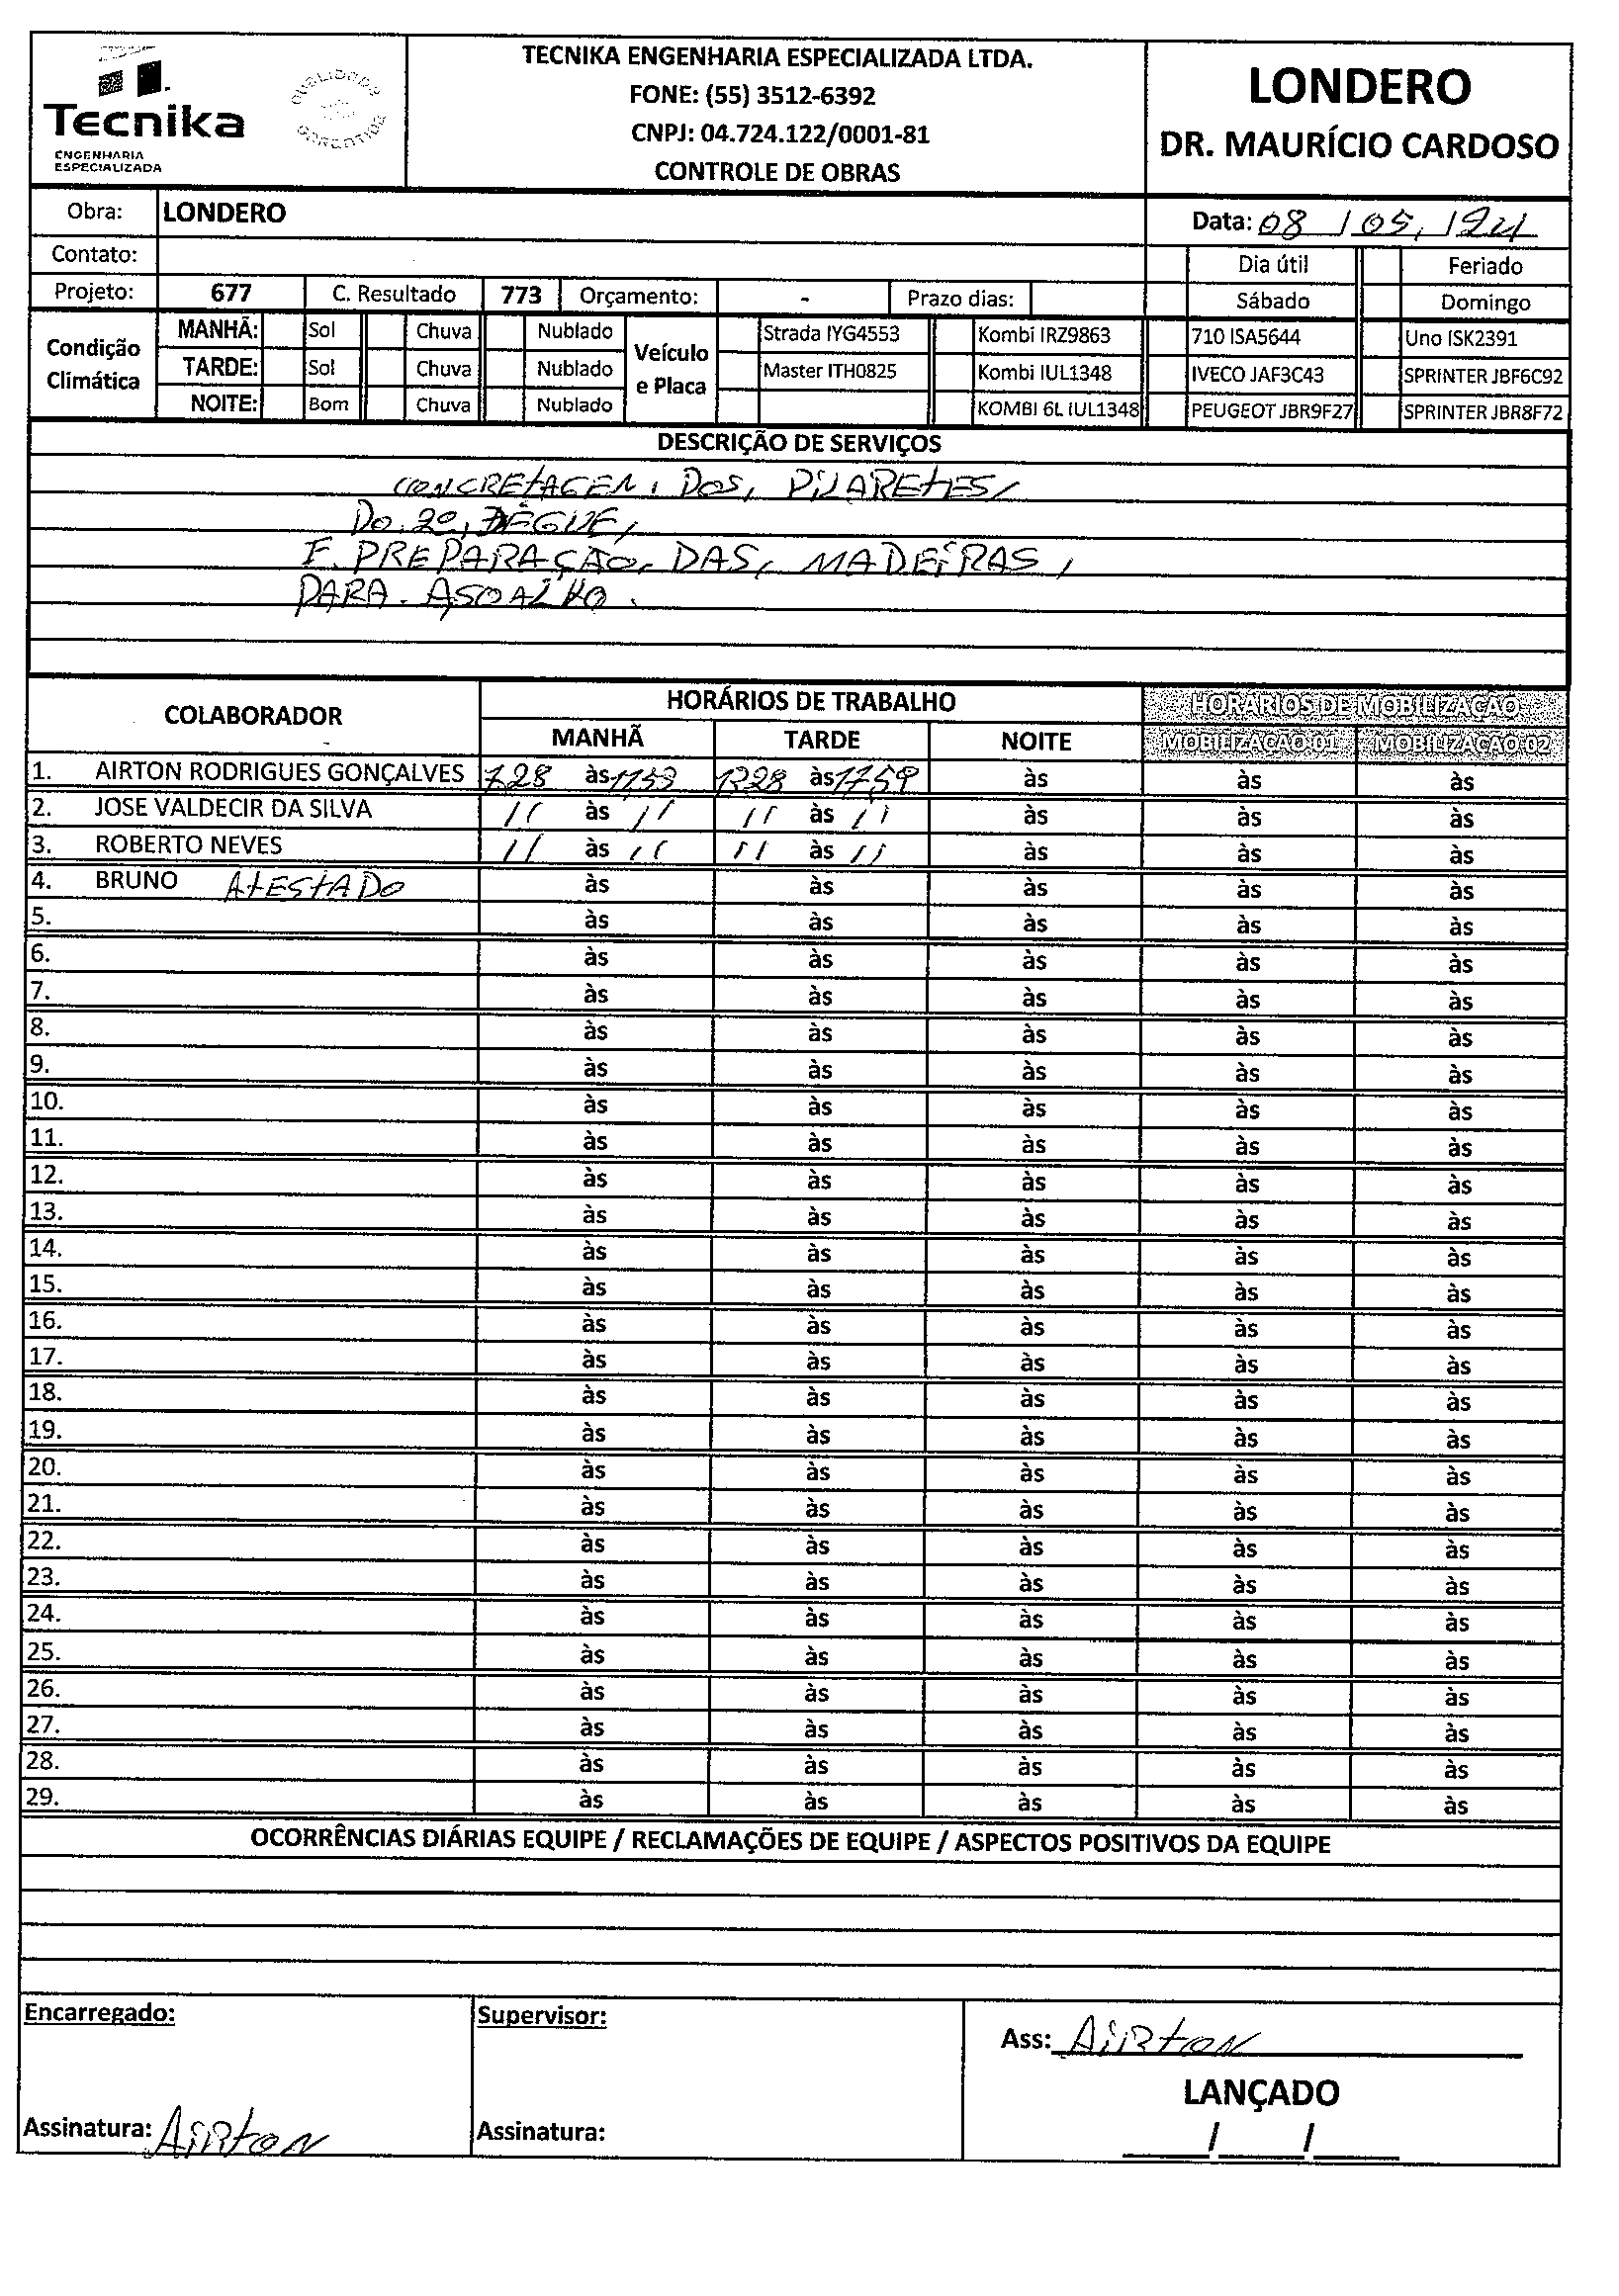 Tecnika
ENGENHARIA
ESPECIALIZADA
TECNIKA ENGENHARIA ESPECIALIZADA LTDA.
FONE: (55) 3512-6392
CNPJ: 04.724.122/0001-81
CONTROLE DE OBRAS
LONDERO
DR. MAURÍCIO CARDOSO
Obra: LONDERO
Data: 08 / 05, / 24
Contato:
Dia útil Feriado
Projeto: 677 C. Resultado 773 Orçamento: - Prazo dias:
Sábado Domingo
Condição Climática
Veículo e Placa
MANHÃ: Sol Chuva Nublado Strada IYG4553 Kombi IRZ9863 710 ISA5644 Uno ISK2391
TARDE: Sol Chuva Nublado Master ITH0825 Kombi IUL1348 IVECO JAF3C43 SPRINTER JBF6C92
NOITE: Bom Chuva Nublado KOMBI 6L IUL1348 PEUGEOT JBR9F27 SPRINTER JBR8F72
DESCRIÇÃO DE SERVIÇOS
CONCRETAGEN. DOS, PILARETES,
DO. 2º,
E. PREPARAÇÃO. DAS, MADEIRAS,
PARA. ASOALHO.
COLABORADOR HORÁRIOS DE TRABALHO HORÁRIOS DE MOBILIZAÇÃO
MANHÃ TARDE NOITE MOBILIZAÇÃO 01 MOBILIZAÇÃO 02
1. AIRTON RODRIGUES GONÇALVES 728 às 11,53 1328 às 17,59 às às às
2. JOSE VALDECIR DA SILVA 11 às 11 11 às 11 às às às
3. ROBERTO NEVES 11 às 11 11 às 11 às às às
4. BRUNO ATESTADO às às às às às
5. às às às às às
6. às às às às às
7. às às às às às
8. às às às às às
9. às às às às às
10. às às às às às
11. às às às às às
12. às às às às às
13. às às às às às
14. às às às às às
15. às às às às às
16. às às às às às
17. às às às às às
18. às às às às às
19. às às às às às
20. às às às às às
21. às às às às às
22. às às às às às
23. às às às às às
24. às às às às às
25. às às às às às
26. às às às às às
27. às às às às às
28. às às às às às
29. às às às às às
OCORRÊNCIAS DIÁRIAS EQUIPE / RECLAMAÇÕES DE EQUIPE / ASPECTOS POSITIVOS DA EQUIPE
Encarregado:
Supervisor:
Ass: AiRtON
LANÇADO
Assinatura: AiRtON
Assinatura:
____/____/____